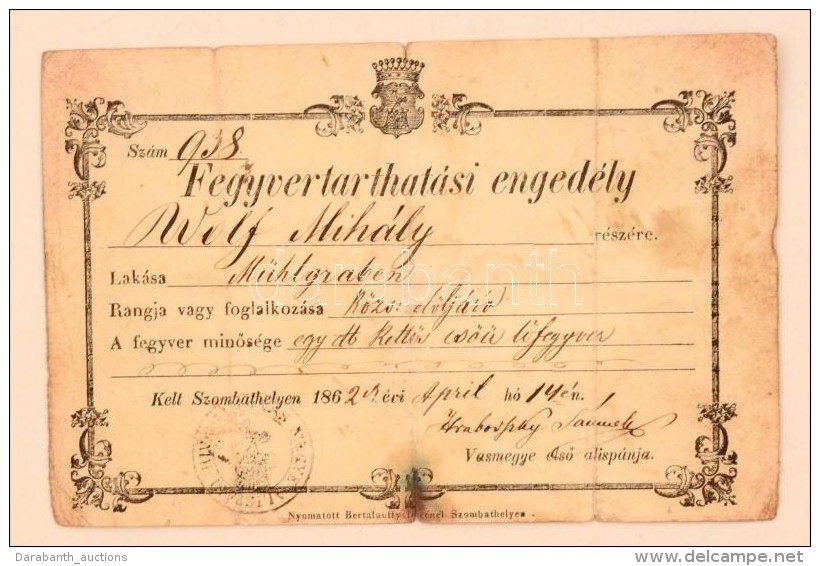 Szám 938.
Fegyvertarthatási engedély
Wolf Mihály részére.
Lakása Mühlgraben
Rangja vagy foglalkozása közs: elöljáró
A fegyver minősége egy db kettős csöű lőfegyver
Kelt Szombathelyen 1862 évi April hó 14én.
Hrabovszky Sámuel
Vasmegye első alispánja.
Nyomatott Bertalanffy Szombathelyen.
darabanth
Darabanth_auctions
delcampe.net